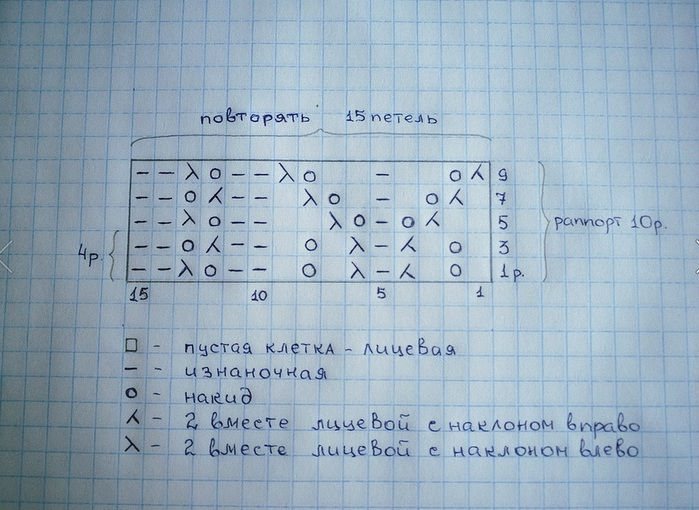 повторять 15 петель
— — λ о — — λ о — о ⋌ 9
— — о ⋌ — — λ о — о ⋌ 7
— — λ о — — λ о — о ⋌ 5 раппорт 10р.
4р. — — о ⋌ — — о λ — ⋌ о 3
— — λ о — — о λ — ⋌ о 1р.
15 10 5 1
□ - пустая клетка - лицевая
— - изнаночная
о - накид
⋌ - 2 вместе лицевой с наклоном вправо
λ - 2 вместе лицевой с наклоном влево